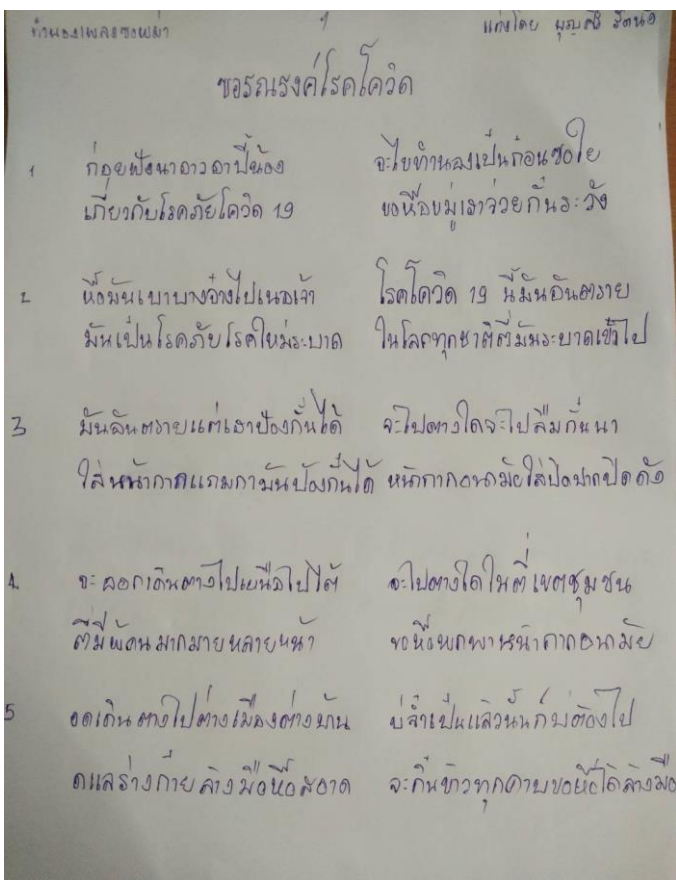 ทำนองเพลงซอพม่า 1 แต่งโดย บุญศรี รัตนัง
ซอรณรงค์โรคโควิด
1 ก่อยฟังนาอาวอาปี้น้อง จะไขทำนองเป็นก้อนซอใย
เกี่ยวกับโรคภัยโควิด 19 ขอหื้อหมู่เฮาจ่วยกั๋นระวัง
2 หื้อมันเบาบางจ๋างไปเนอเจ้า โรคโควิด 19 นี้มันอันตราย
มันเป็นโรคภัยโรคใหม่ระบาด ในโลกทุกชาติตี่มันระบาดเข้าไป
3 มันอันตรายแต่เฮาป้องกั๋นได้ จะไปตางใดจะไปลืมกั๋นนา
ใส่หน้ากากแถมกามันป้องกั๋นได้ หน้ากากอนามัยใส่ปิดปากปิดดัง
4. จะลอกเดินตางไปเหนือไปใต้ จะไปตางใดในตี่เขตชุมชน
ตี่มีผู้คนมากมายหลายหน้า ขอหื้อพกพาหน้ากากอนามัย
5 งดเดินตางไปต่างเมืองต่างบ้าน บ่จำเป็นแล้วนั้นก็บ่ต้องไป
ดูแลร่างก๋ายล้างมือหื้อสะอาด จะกิ๋นข้าวทุกคาบขอหื้อได้ล้างมือ